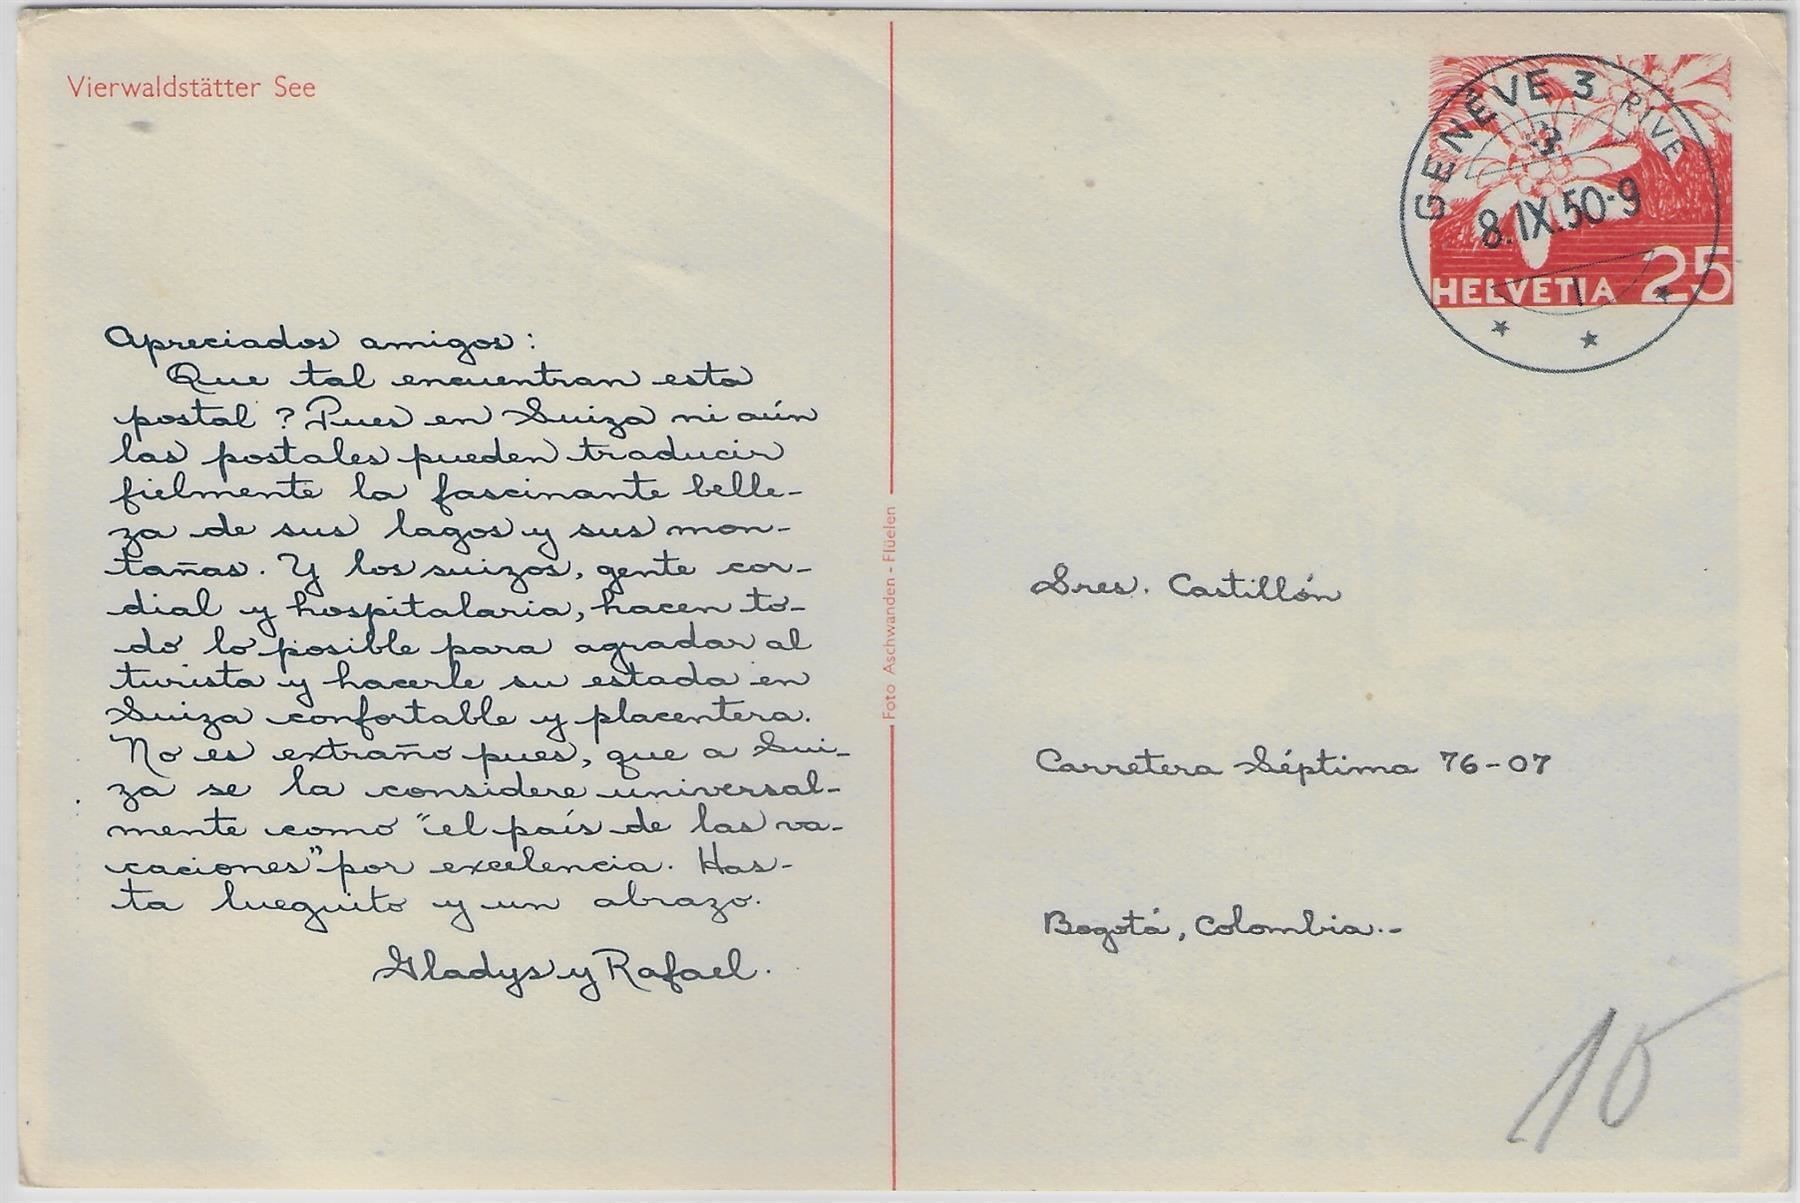 Vierwaldstätter See
Apreciados amigos:
Que tal encuentran esta
postal? Pues en Suiza ni aún
las postales pueden traducir
fielmente la fascinante belle-
za de sus lagos y sus mon-
tañas. Y los suizos, gente cor-
dial y hospitalaria, hacen to-
do lo posible para agradar al
turista y hacerle su estada en
Suiza confortable y placentera.
No es extraño pues, que a Sui-
za se la considere universal-
mente como "el país de las va-
caciones" por excelencia. Has-
ta lueguito y un abrazo.
Gladys y Rafael.
Foto Aschwanden - Flüelen
GENÈVE 3 RIVE
8.IX.50-9
HELVETIA 25
Sres. Castillón
Carretera Séptima 76-07
Bogotá, Colombia.-
10